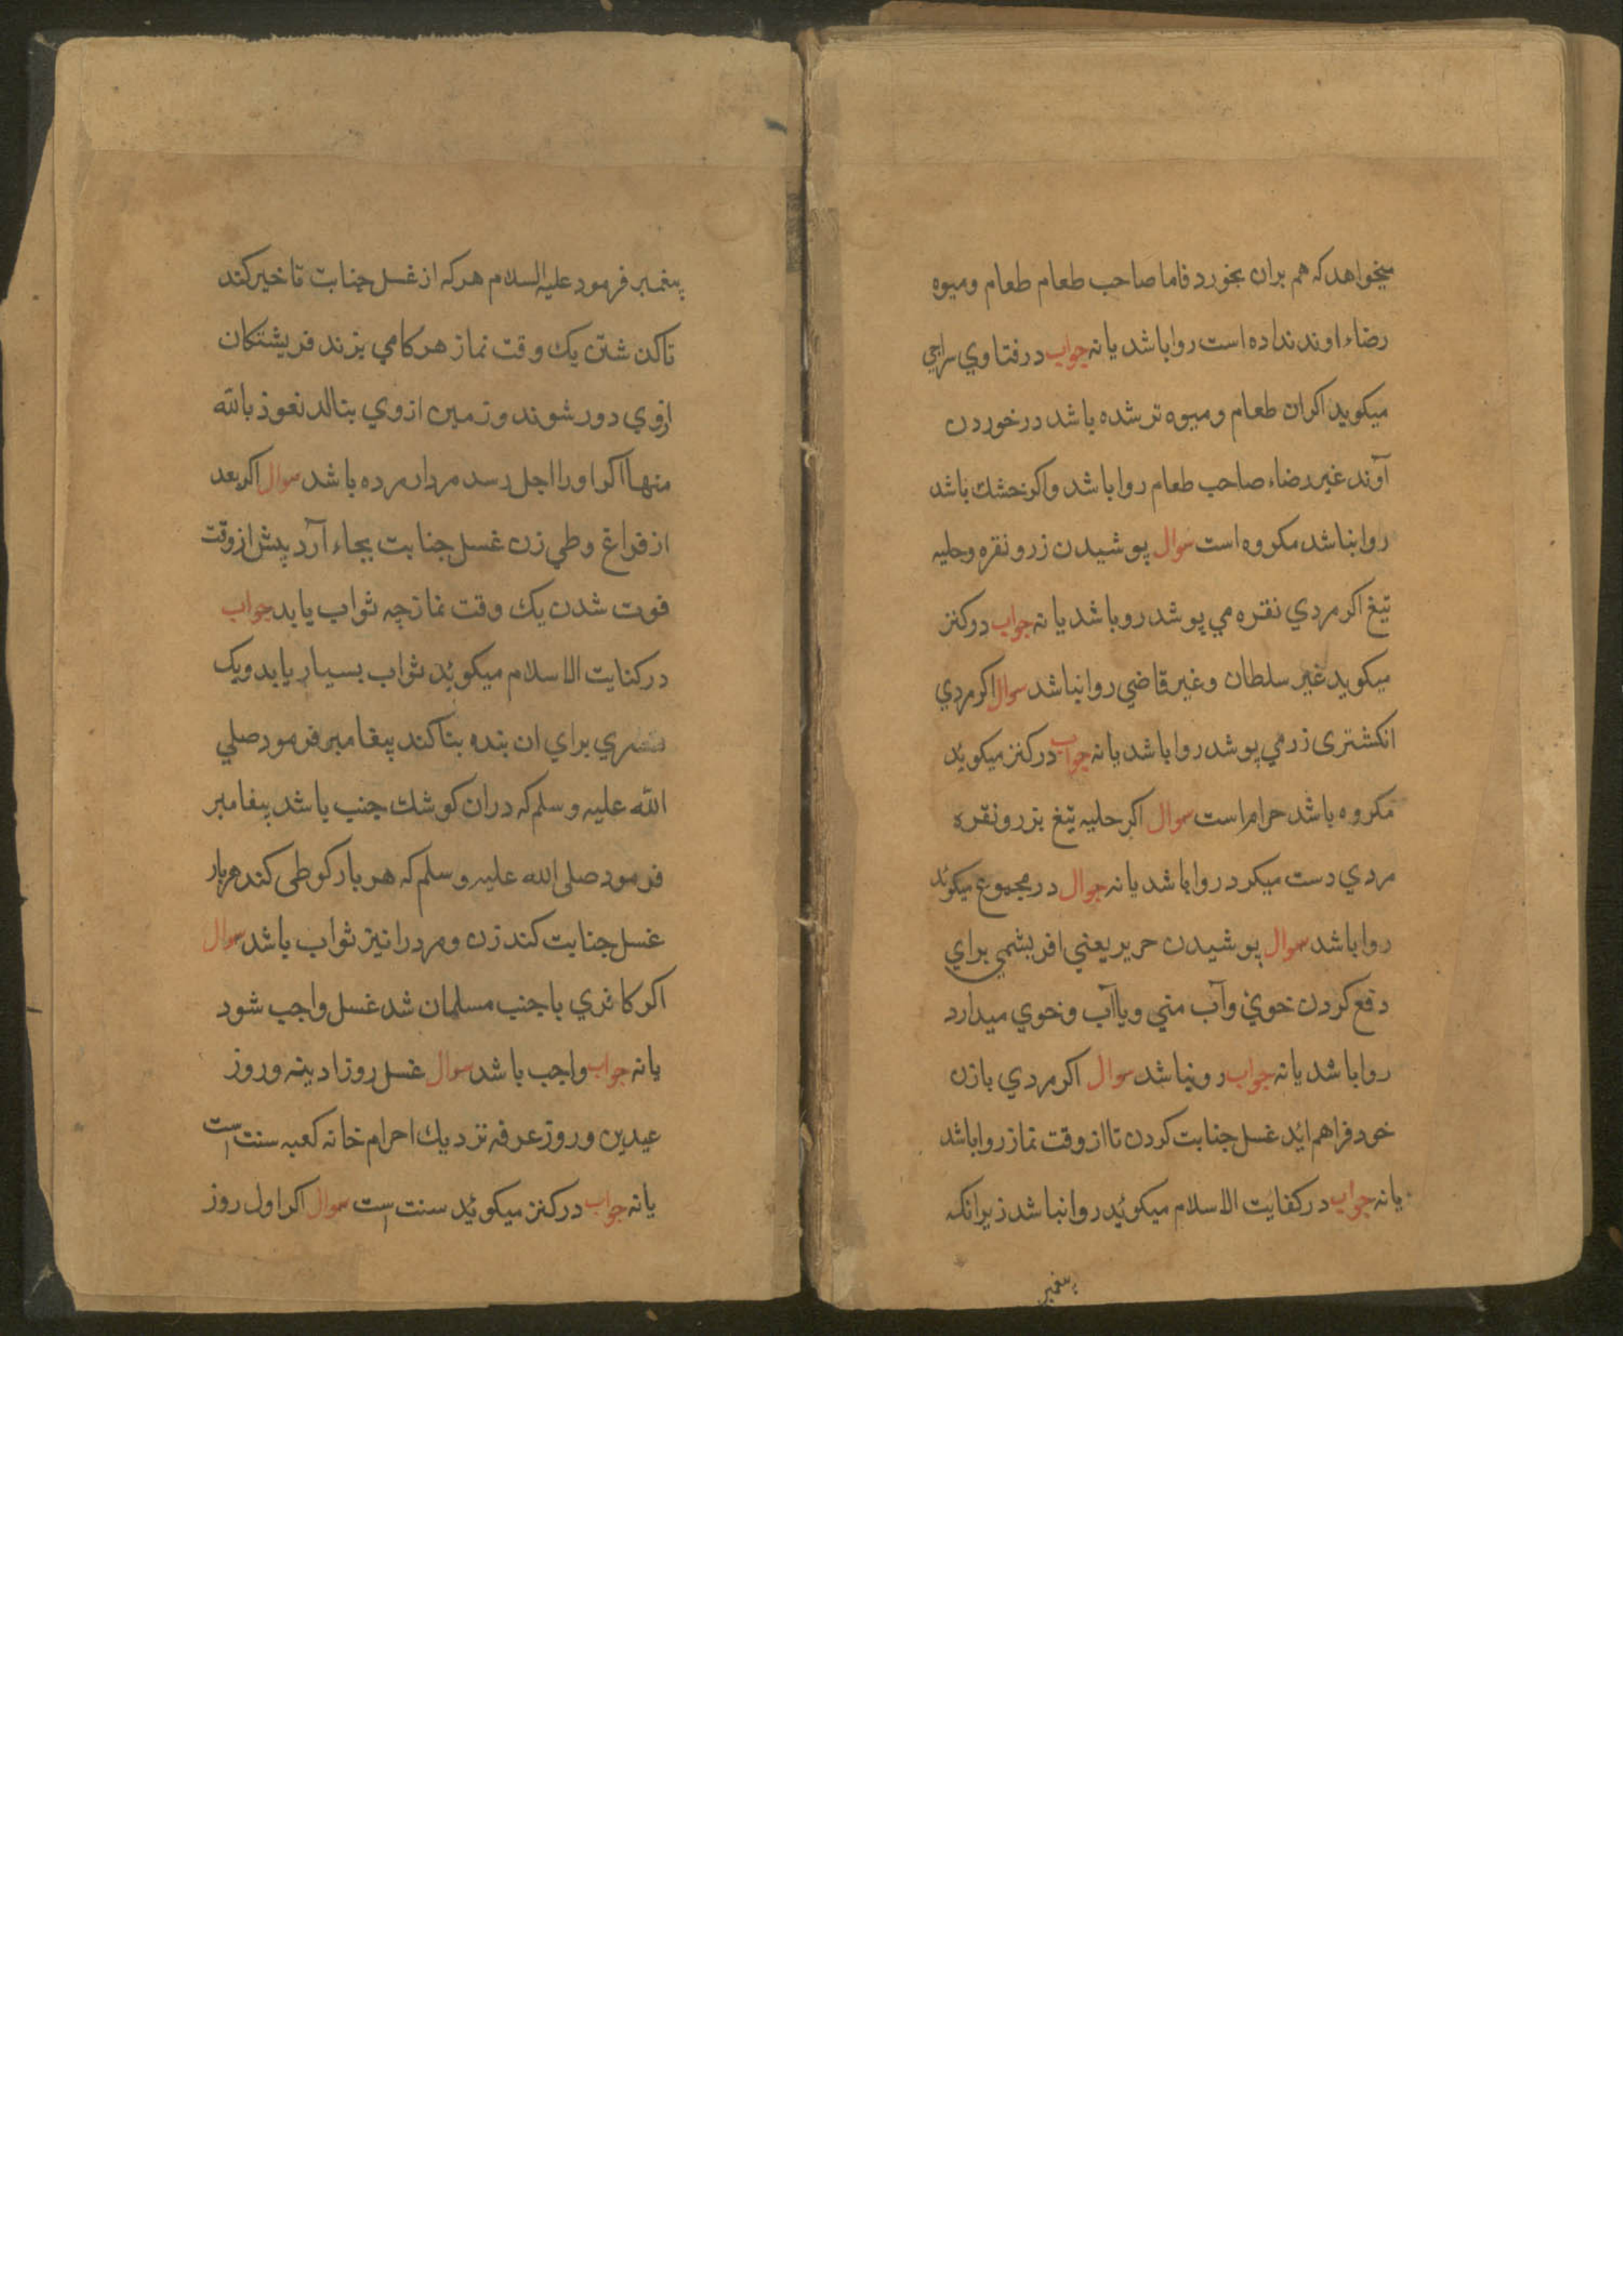 میخواهد که هم بران بخورد فاما صاحب طعام طعام و میوه
رضاء اوند نداده است روا باشد یا نه جواب در فتاوي سراجي
میکوید اکر ان طعام و میوه تر شده باشد در خوردن
آوند غیر رضاء صاحب طعام روا باشد واکر خشك باشد
روا بناشد مکروه است سوال پوشیدن زر و نقره وحلیه
تیغ اکر مردي نقره مي پوشد رو باشد یا نه جواب در کنز
میکوید غیر سلطان وغیر قاضي روا نباشد سوال اکر مردي
انکشتری زر مي پوشد روا باشد یا نه جواب در کنز میکوئد
مکروه باشد حرام است سوال اکر حلیه تیغ بزر و نقره
مردي دست میکرد روا باشد یا نه جوال در مجموع میکوئد
روا باشد سوال پوشیدن حریر یعني افریشمي براي
دفع کردن خوي وآب مني ویا آب وخوي میدارد
روا باشد یا نه جواب رونباشد سوال اکر مردي با زن
خود فراهم ائد غسل جنابت کردن تا از وقت نماز روا باشد
یا نه جواب در کفایت الاسلام میکوئد روا نباشد زیرا نکه
پیغمبر
پیغمبر فرمود علیه السلام هر که از غسل جنابت تاخیر کند
تا کذ شتن یك وقت نماز هر کامي بزند فریشتکان
ازوي دور شوند و زمین از وي بنالد نعوذ بالله
منها اکر اورا اجل رسد مردار مرده باشد سوال اکر بعد
از فراغ وطي زن غسل جنابت بجاء آرد پیش از وقت
فوت شدن یك وقت نماز چه ثواب یابد جواب
در کنایت الاسلام میکوئد ثواب بسیار یابد ویك
براي ان بنده بنا کند پیغامبر فرمود صلي
الله علیه وسلم که دران کوشك جنب باشد پیغامبر
فرمود صلی الله علیه وسلم که هر بار کو طی کند هر بار
غسل جنابت کند زن و مرد را نیز ثواب باشد سوال
اکر کافري با جنب مسلمان شد غسل واجب شود
یا نه جواب واجب باشد سوال غسل روز ادینه وروز
عیدین وروز عرفه نزدیك احرام خانه کعبه سنت است
یا نه جواب در کنز میکوئد سنت است سوال اکر اول روز